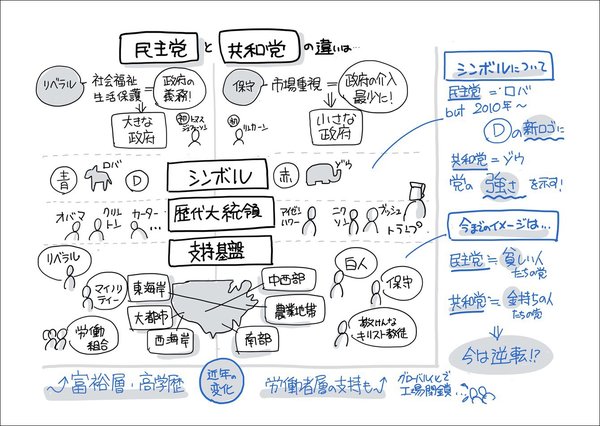 民主党 と 共和党 の違いは…
リベラル
社会福祉
生活保護
=
政府の
義務!
大きな
政府
初
トマス
ジェファソン
保守
市場重視
=
政府の介入
最少に!
小さな
政府
初
リンカーン
青
ロバ
D
シンボル
赤
ゾウ
歴代大統領
オバマ
クリントン
カーター
…
アイゼン
ハワー
ニクソン
ブッシュ
トランプ
支持基盤
リベラル
マイノリ
ティー
労働
組合
東海岸
大都市
西海岸
中西部
農業地帯
南部
白人
保守
敬けんな
キリスト教徒
富裕層・高学歴
近年の
変化
労働者層の支持も
グローバル化で
工場閉鎖…
シンボルについて
民主党 = ロバ
but 2010年〜
Dの新ロゴに
共和党 = ゾウ
党の強さを示す!
今までのイメージは…
民主党 ≒ 貧しい人
たちの党
共和党 ≒ 金持ちの人
たちの党
今は逆転!?